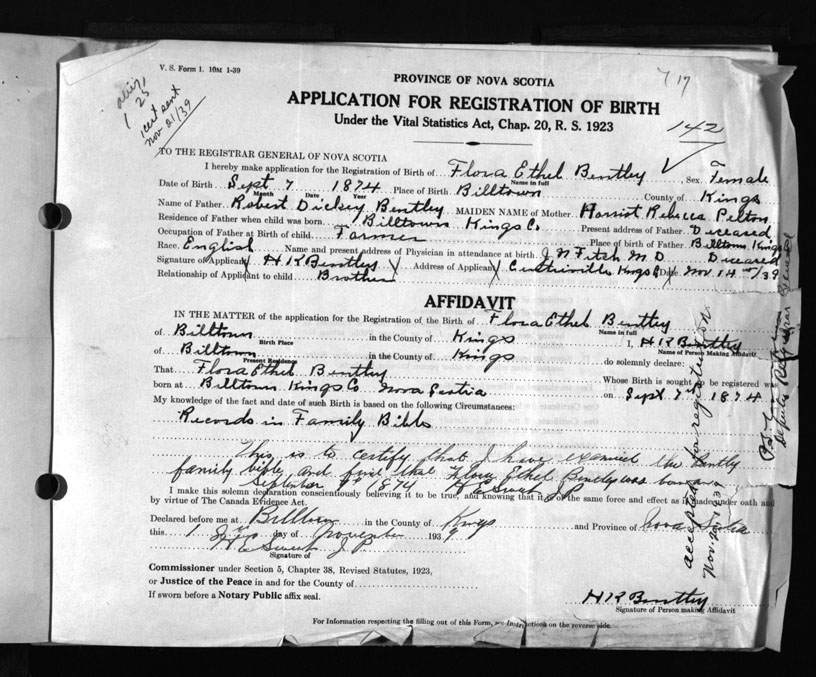 V. S. Form 1. 10M 1-39
cert sent
Nov 21/39
PROVINCE OF NOVA SCOTIA
APPLICATION FOR REGISTRATION OF BIRTH
Under the Vital Statistics Act, Chap. 20, R. S. 1923
142
TO THE REGISTRAR GENERAL OF NOVA SCOTIA
I hereby make application for the Registration of Birth of Flora Ethel Bentley Sex Female
Name in full
Date of Birth Sept 7 1874 Place of Birth Billtown County of Kings
Month Date Year
Name of Father Robert Dickey Bentley MAIDEN NAME of Mother Harriot Rebecca Pelton
Residence of Father when child was born Billtown Kings Co. Present address of Father Diceared
Occupation of Father at Birth of child Farmer Place of birth of Father Billtown Kings
Race English Name and present address of Physician in attendance at birth J N Fitch M D Diceared
Signature of Applicant H K Bentley Address of Applicant Centreville Kings Co Date Nov. 14 /39
Relationship of Applicant to child Brother
AFFIDAVIT
IN THE MATTER of the application for the Registration of the Birth of Flora Ethel Bentley
Name in full
of Billtown in the County of Kings I, H K Bentley
Birth Place Name of Person Making Affidavit
of Billtown in the County of Kings do solemnly declare:
Present Residence
That Flora Ethel Bentley Whose Birth is sought to be registered was
born at Billtown Kings Co. Nova Scotia on Sept 7 1874
My knowledge of the fact and date of such Birth is based on the following Circumstances:
Records in Family Bible
This is to certify that I have examined the Bently
family bible and find that Flora Ethel Bently was born on
September 7th 1874
I make this solemn declaration conscientiously believing it to be true, and knowing that it is of the same force and effect as if made under oath and
by virtue of The Canada Evidence Act.
Declared before me at Billtown in the County of Kings and Province of Nova Scotia
this day of November 1939
J. P.
Signature of
Commissioner under Section 5, Chapter 38, Revised Statutes, 1923,
or Justice of the Peace in and for the County of
If sworn before a Notary Public affix seal.
H K Bentley
Signature of Person making Affidavit
For Information respecting the filling out of this Form, see Instructions on the reverse side.
accepted for registration.
Nov. 20, 1939
Deputy Registrar General